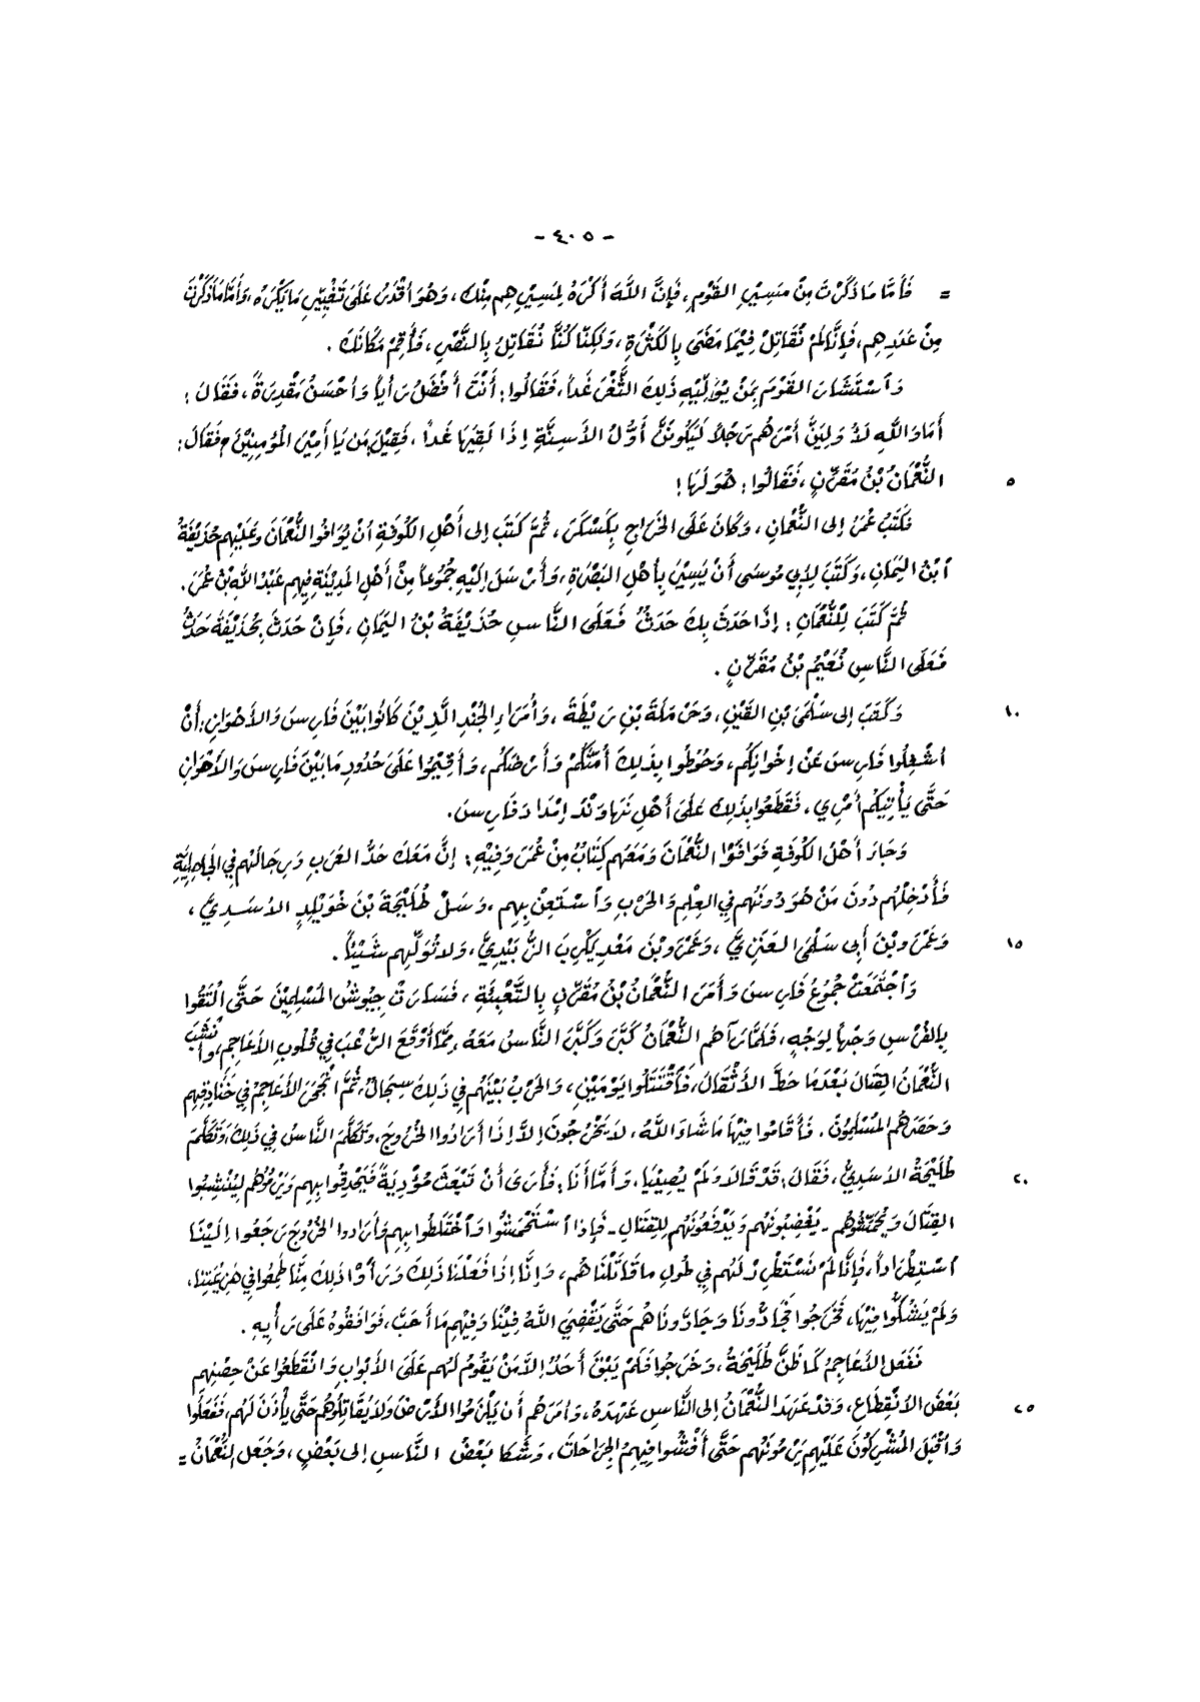 - ٤٠٥ -
= فَأَمَّا مَا ذَكَرْتَ مِنْ مَسِيْرِ القَوْمِ، فَإِنَّ اللَّهَ أَكْرَهُ لِمَسِيْرِهِم مِنْكَ، وَهُوَ أَقْدَرُ عَلَى تَغْيِيْرِ مَا يَكْرَهُ، وَأَمَّا مَا ذَكَرْتَ
مِنْ عَدَدِهِم، فَإِنَّا لَمْ نُقَاتِلْ فِيْمَا مَضَى بِالكَثْرَةِ، وَلَكِنَّا كُنَّا نُقَاتِلُ بِالنَّصْرِ، فَأَقِمْ مَكَانَكَ.
وَاسْتَشَارَ القَوْمَ بِمَنْ يُوَلِّيْهِ ذَلِكَ الثَّغْرَ غَداً، فَقَالُوا: أَنْتَ أَفْضَلُ رَأْياً وَأَحْسَنُ مَقْدِرَةً، فَقَالَ:
أَمَا وَاللَّهِ لَأُوَلِّيَنَّ أَمْرَهُم رَجُلاً لَيَكُونَنَّ أَوَّلَ الأَسِنَّةِ إِذَا لَقِيَهَا غَداً، فَقِيْلَ: مَن يَا أَمِيْرَ المُؤْمِنِيْنَ؟ فَقَالَ:
٥ النُّعْمَانُ بْنُ مُقَرِّنٍ، فَقَالُوا: هُوَ لَهَا!
فَكَتَبَ عُمَرُ إلى النُّعْمَانِ، وَكَانَ عَلَى الخَرَاجِ بِكَسْكَرَ، ثُمَّ كَتَبَ إلى أَهْلِ الكُوفَةِ أَنْ يُوَافُوا النُّعْمَانَ وَعَلَيْهِم حُذَيْفَةُ
ابْنُ اليَمَانِ، وَكَتَبَ لِأَبِي مُوسَى أَنْ يَسِيْرَ بِأَهْلِ البَصْرَةِ، وَأَرْسَلَ إِلَيْهِ جُمُوعاً مِنْ أَهْلِ المَدِيْنَةِ فِيهِم عَبْدُ اللهِ بْنُ عُمَرَ.
ثُمَّ كَتَبَ لِلْنُّعْمَانِ: إِذَا حَدَثَ بِكَ حَدَثٌ فَعَلَى النَّاسِ حُذَيْفَةُ بْنُ اليَمَانِ، فَإِنْ حَدَثَ بِحُذَيْفَةَ حَدَثٌ
فَعَلَى النَّاسِ نُعَيْمُ بْنُ مُقَرِّنٍ.
١٠ وَكَتَبَ إلى سَلْمَى بْنِ القَيْنِ، وَحَرْمَلَةَ بْنِ رَيْطَةَ، وَأُمَرَاءِ الجُنْدِ الَّذِيْنَ كَانُوا بَيْنَ فَارِسَ وَالأَهْوَازِ: أَنْ
اشْغِلُوا فَارِسَ عَنْ إِخْوَانِكُم، وَحُوطُوا بِذَلِكَ أُمَّتَكُمْ وَأَرْضَكُم، وَأَقِيْمُوا عَلَى حُدُودِ مَا بَيْنَ فَارِسَ وَالأَهْوَازِ
حَتَّى يَأْتِيَكُم أَمْرِي، فَقَطَعُوا بِذَلِكَ عَلَى أَهْلِ نَهَاوَنْدَ إِمْدَادَ فَارِسَ.
وَجَاءَ أَهْلُ الكُوفَةِ فَوَافَوْا النُّعْمَانَ وَمَعَهُم كِتَابٌ مِنْ عُمَرَ وَفِيْهِ: إِنَّ مَعَكَ حَدَّ العَرَبِ وَرِجَالَهُم فِي الجَاهِلِيَّةِ
فَأَدْخِلْهُم دُونَ مَنْ هُوَ دُونَهُم فِي العِلْمِ وَالحَرْبِ وَاسْتَعِنْ بِهِم، وَسَلْ طُلَيْحَةَ بْنَ خُوَيْلِدٍ الأَسَدِيَّ،
١٥ وَعَمْرَو بْنَ أَبِي سَلْمَى العَنَزِيَّ، وَعَمْرَو بْنَ مَعْدِيكَرِبَ الزُّبَيْدِيَّ، وَلا تُوَلِّهِم شَيْئاً.
وَاجْتَمَعَتْ جُمُوعُ فَارِسَ وَأَمَرَ النُّعْمَانُ بْنُ مُقَرِّنٍ بِالتَّعْبِئَةِ، فَسَارَتْ جِيُوشُ المُسْلِمِيْنَ حَتَّى الْتَقُوا
بِالفُرْسِ وَجْهاً لِوَجْهٍ، فَلَمَّا رَآهُم النُّعْمَانُ كَبَّرَ وَكَبَّرَ النَّاسُ مَعَهُ، مِمَّا أَوْقَعَ الرُّعْبَ فِي قُلُوبِ الأَعَاجِمِ، وَأَنْشَبَ
النُّعْمَانُ القِتَالَ بَعْدَمَا حَطَّ الأَثْقَالَ، فَاقْتَتَلُوا يَوْمَيْنِ، وَالحَرْبُ بَيْنَهُم فِي ذَلِكَ سِجَالٌ، ثُمَّ انْجَحَرَ الأَعَاجِمُ فِي خَنَادِقِهِم
وَحَصَرَهُمُ المُسْلِمُونَ. فَأَقَامُوا فِيْهَا مَا شَاءَ اللَّهُ، لَا يَخْرُجُونَ إِلَّا إِذَا أَرَادُوا الخُرُوجَ، وَتَكَلَّمَ النَّاسُ فِي ذَلِكَ، وَتَكَلَّمَ
٢٠ طُلَيْحَةُ الأَسَدِيُّ، فَقَالَ: قَدْ قَالَا وَلَمْ يُصِيْبَا، وَأَمَّا أَنَا: فَأَرَى أَنْ تَبْعَثَ مُؤْدِيَةً فَيُحْدِقُوا بِهِم وَيَرْمُوْهُم لِيُنْشِبُوا
القِتَالَ وَيُحَمِّشُوهُم - يَغْضِبُونَهُم وَيَدْفَعُونَهُم لِلْقِتَالِ - فَإِذَا اسْتَحْمَشُوا وَاخْتَلَطُوا بِهِم وَأَرَادوا الخُرُوجَ رَجَعُوا إِلَيْنَا
اسْتِطْرَاداً، فَإِنَّا لَمْ نَسْتَطْرِدْ لَهُم فِي طُولِ مَا قَاتَلْنَاهُم، وَإِنَّا إِذَا فَعَلْنَا ذَلِكَ وَرَأَوْا ذَلِكَ مِنَّا طَمِعُوا فِي هَزِيْمَتِنَا،
وَلَمْ يَشُكُّوا فِيْهَا، فَخَرَجُوا فَجَادُّونَا وَجَادَدْنَاهُم حَتَّى يَقْضِيَ اللَّهُ فِيْنَا وَفِيْهِم مَا أَحَبَّ، فَوَافَقُوهُ عَلَى رَأْيِهِ.
فَفَعَلَ الأَعَاجِمُ كَمَا ظَنَّ طُلَيْحَةُ، وَخَرَجُوا فَلَمْ يَبْقَ أَحَدٌ إِلَّا مَنْ يَقُومُ لَهُم عَلَى الأَبْوَابِ وَانْقَطَعُوا عَنْ حِصْنِهِم
٢٥ بَعْضَ الانْقِطَاعِ، وَقَدْ عَهِدَ النُّعْمَانُ إلى النَّاسِ عَهْدَهُ، وَأَمَرَهُم أَن يَلْزَمُوا الأَرْضَ وَلَا يُقَاتِلُوهُم حَتَّى يَأْذَنَ لَهُم، فَفَعَلُوا
وَأَقْبَلَ المُشْرِكُونَ عَلَيْهِم يَرْمُونَهُم حَتَّى أَفْشُوا فِيهِمُ الجِرَاحَاتِ، وَشَكَا بَعْضُ النَّاسِ إلى بَعْضٍ، وَجَعَلَ النُّعْمَانُ =